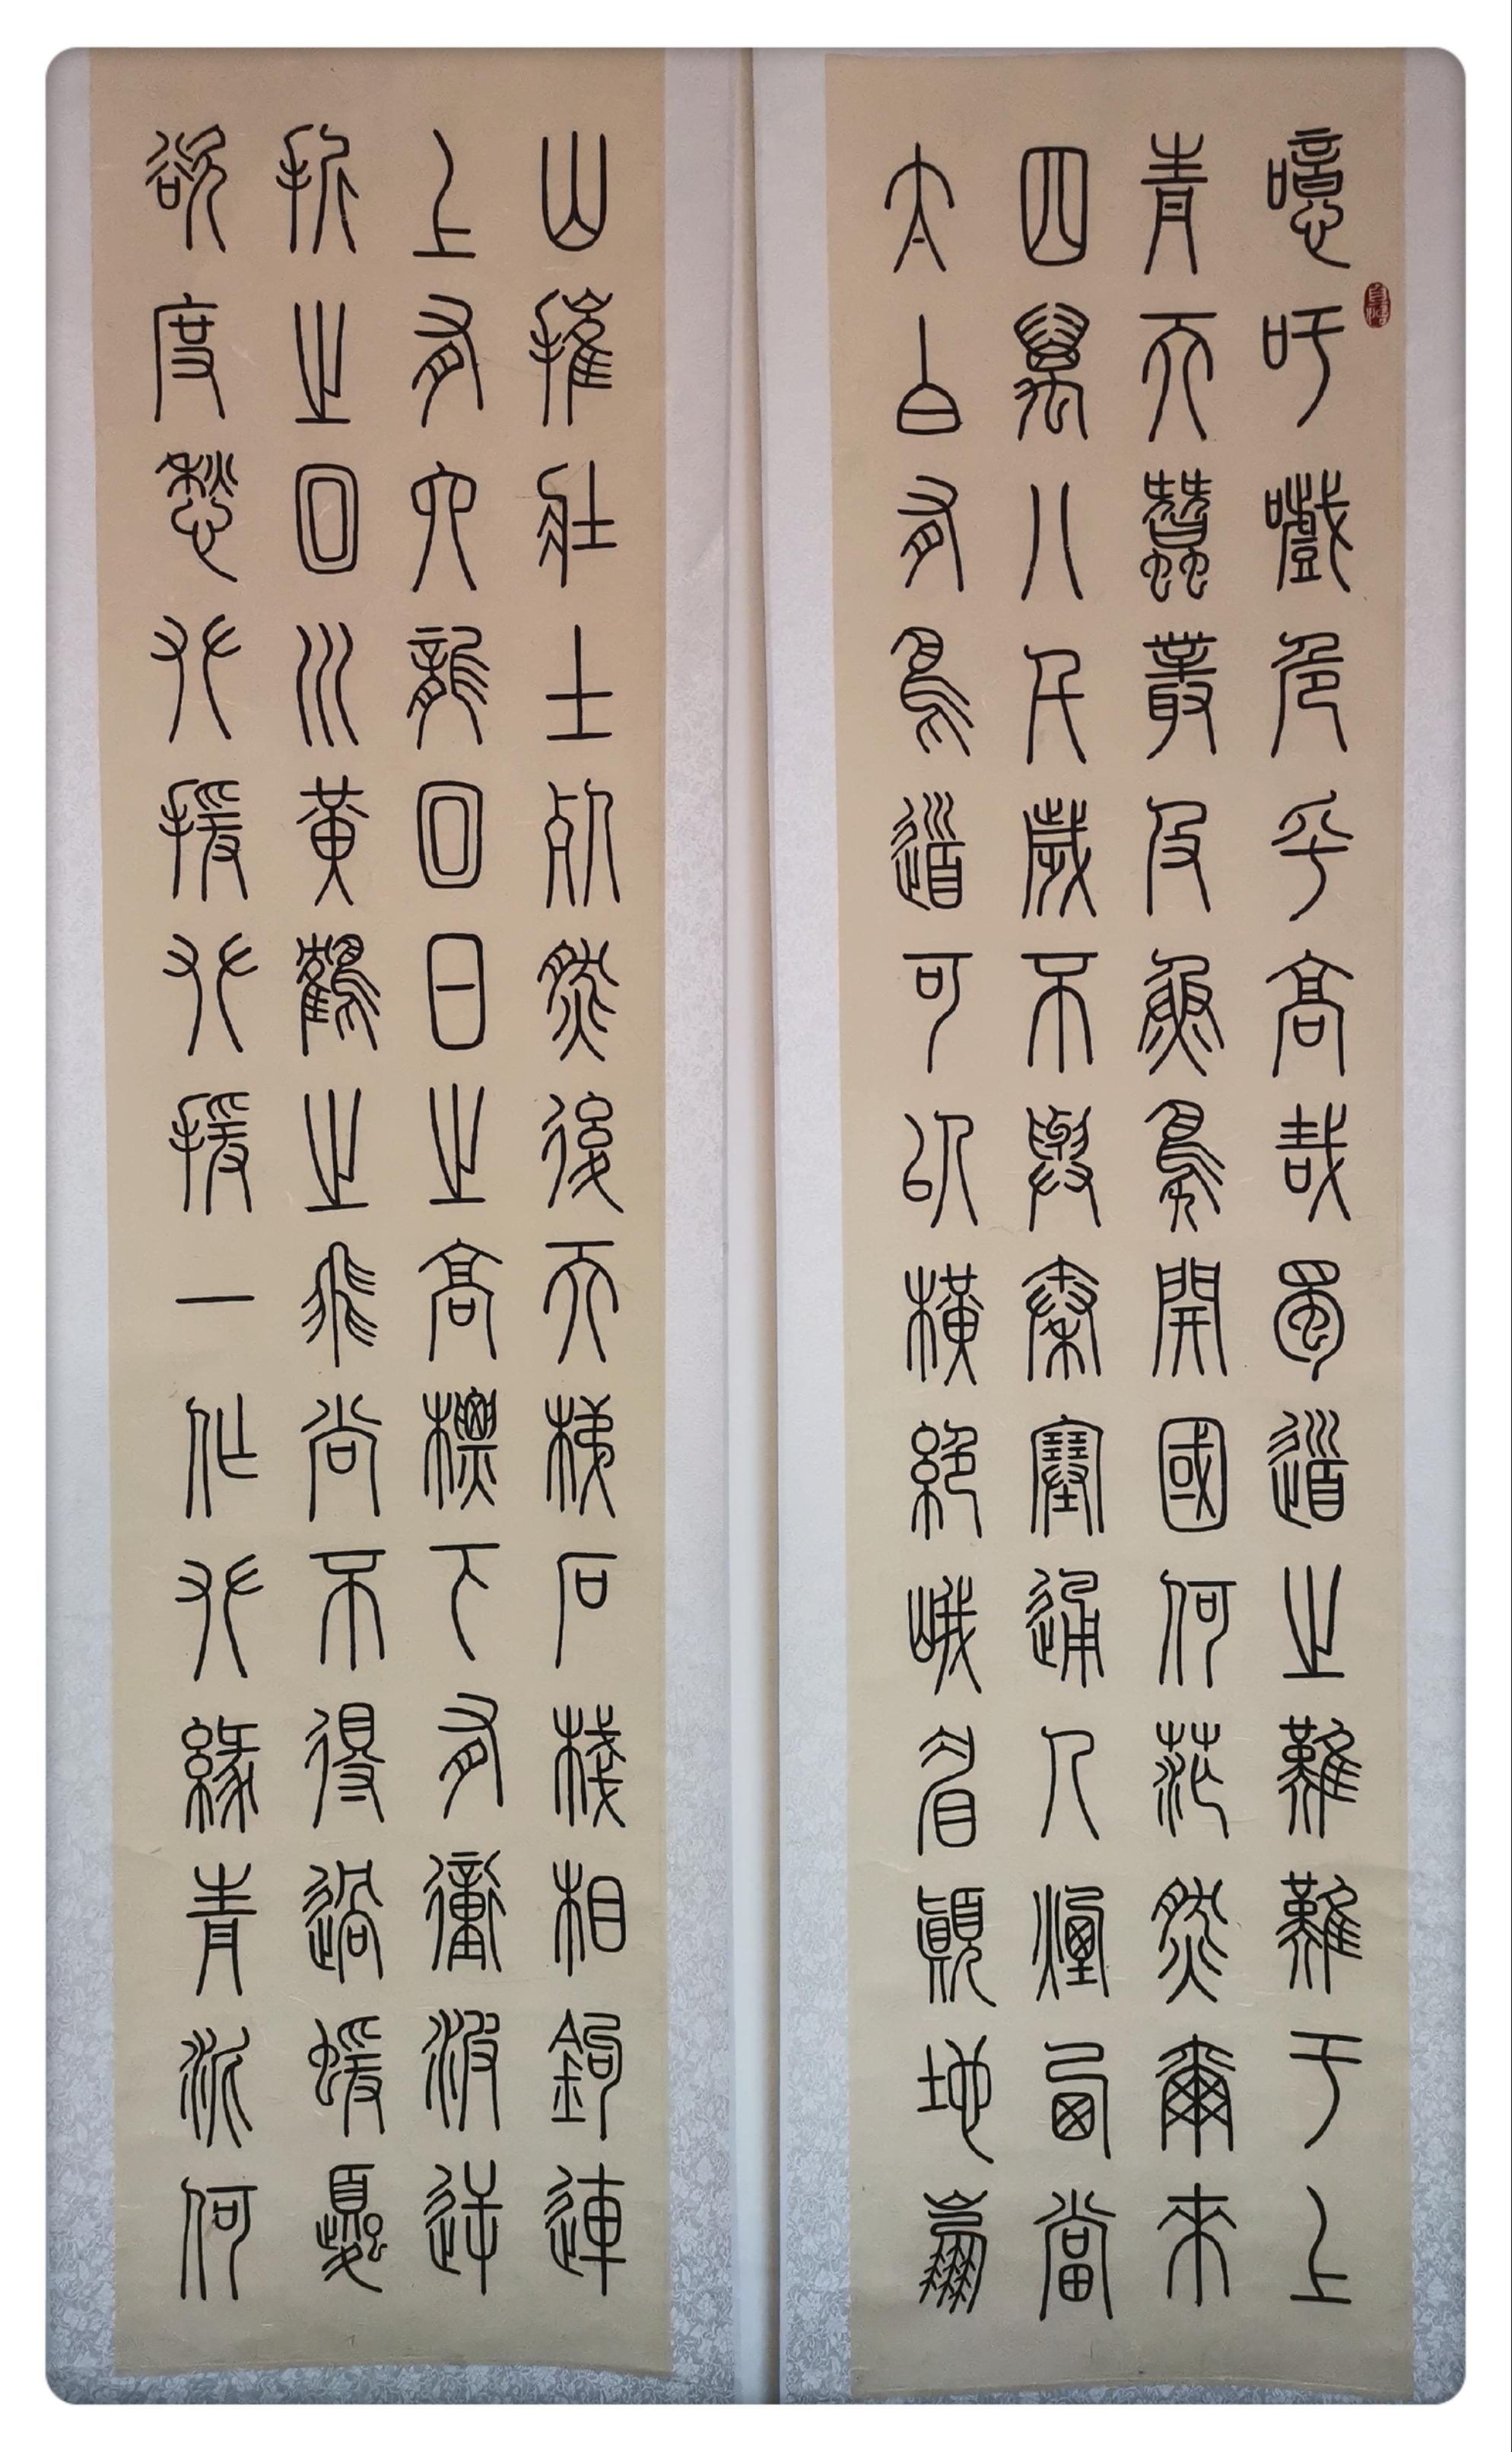 噫吁嚱危乎高哉蜀道之難難于上
青天蠶叢及魚鳧開國何茫然爾來
四萬八千歲不與秦塞通人煙西當
太白有鳥道可以橫絕峨眉顛地崩
山摧壯士死然後天梯石棧相鉤連
上有六龍回日之高標下有衝波逆
折之回川黃鶴之飛尚不得過蝯夒
欲度愁攀援攀援一作攀緣青泥何